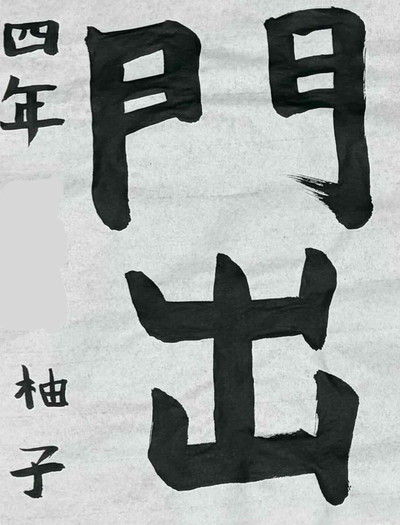 門出
四年
柚子